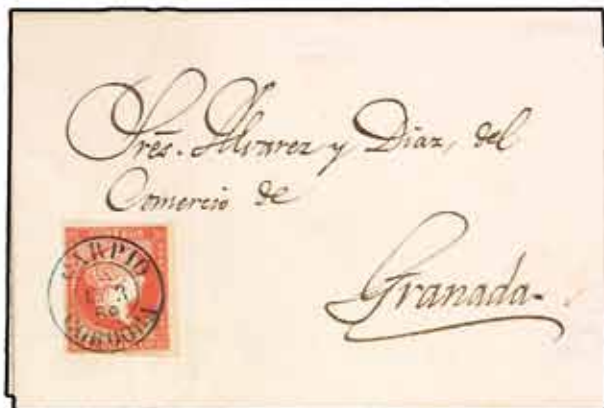 Sres. Alvarez y Diaz, del
Comercio de
Granada.
CARPIO
CORDOBA